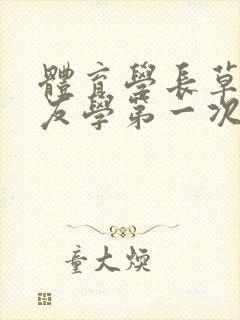 體育學長草
友學第一次
童大煥